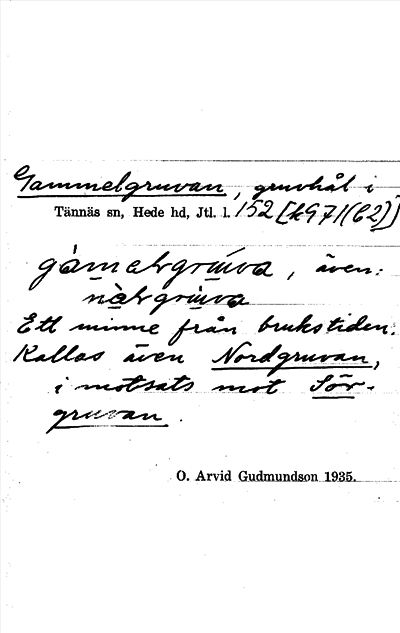 Gammelgruvan, gruvhål i
Tännäs sn, Hede hd, Jtl. l. 152 [k971(62)]
gàmelgrùva, även:
nɷ̀lgrùva
Ett minne från brukstiden.
Kallas även Nordgruvan,
i motsats mot Sör-
gruvan.
O. Arvid Gudmundson 1935.